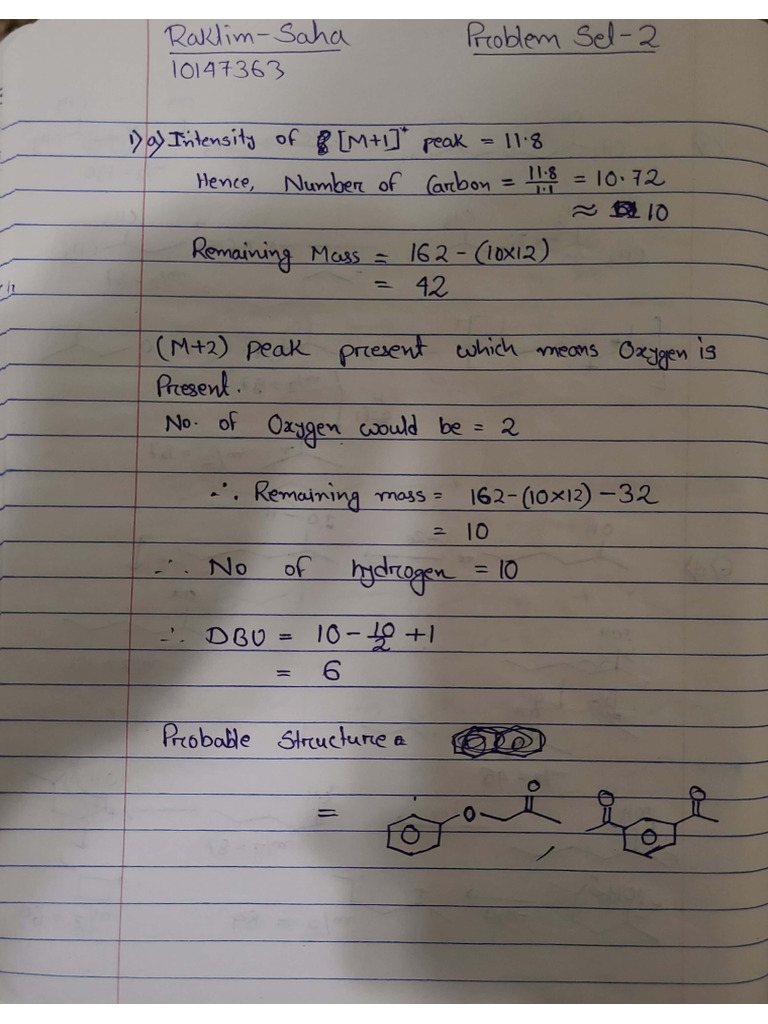 Raktim-Saha Problem Set-2
10147363
1) a) Intensity of [M+1]⁺ peak = 11.8
Hence, Number of Carbon = 11.8/1.1 = 10.72
≈ 10
Remaining Mass = 162 - (10×12)
= 42
(M+2) peak present which means Oxygen is
Present.
No. of Oxygen would be = 2
∴ Remaining mass = 162-(10×12) - 32
= 10
∴ No of hydrogen = 10
∴ DBU = 10 - 10/2 + 1
= 6
Probable Structure
= O O O O